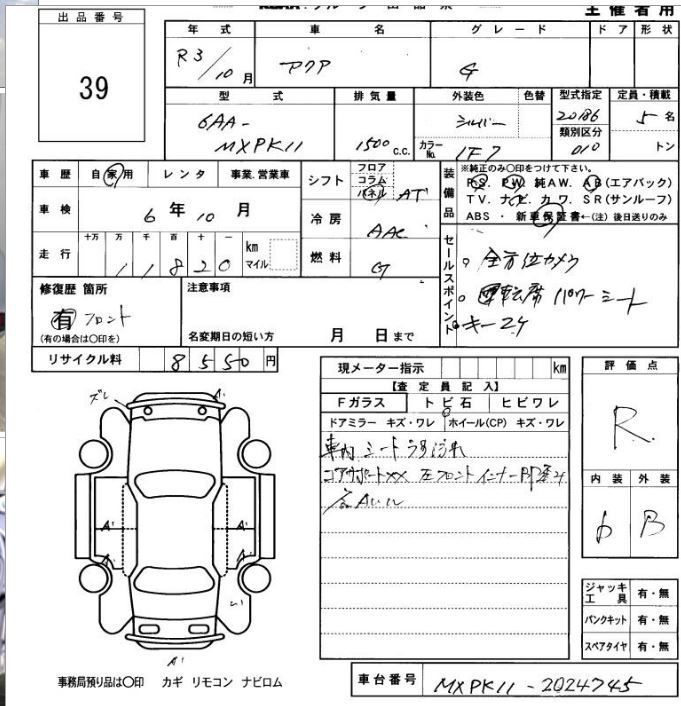 出品番号
39
主催者用
年式 車名 グレード ドア 形状
R3/10月 アクア G
型式 排気量 外装色 色替 型式指定 定員・積載
6AA-MXPK11 1500 c.c. シルバー カラーNo. 1F7 20186 類別区分 010 5名 トン
車歴 自家用 レンタ 事業.営業車
車検 6年10月
走行 十万 万 千 百 十 一 km マイル
11820
シフト フロア コラム パネル AT
冷房 AAC
燃料 G
装備品 ※純正のみ○印をつけて下さい。
PS. PW. 純AW. AB(エアバック)
TV. ナビ. カワ. SR(サンルーフ)
ABS ・ 新車保証書←(注) 後日送りのみ
セールスポイント
全方位カメラ
運転席パワーシート
キー2ケ
修復歴 箇所
有 フロント
(有の場合は○印を)
注意事項
名変期日の短い方 月 日まで
リサイクル料 8550円
現メーター指示 km
【査定員記入】
Fガラス トビ石 ヒビワレ
ドアミラー キズ・ワレ ホイール(CP) キズ・ワレ
車内シート
コアサポートXX 左フロントインナー
評価点
R
内装 外装
6 B
ズレ
A'
A'
A'
A'
A'
A'
ジャッキ工具 有・無
パンクキット 有・無
スペアタイヤ 有・無
事務局預り品は○印 カギ リモコン ナビロム
車台番号 MXPK11-2024745